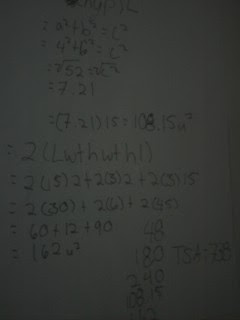 = a² + b² = c²
= 4² + 6² = c²
= √52 = √c²
= 7.21
= (7.21) 15 = 108.15 u²
= 2(Lwthwthl)
= 2(15)2 + 2(3)2 + 2(3)15
= 2(30) + 2(6) + 2(45)
= 60 + 12 + 90
= 162 u²
48
180 TSA = 738
240
108.15
162